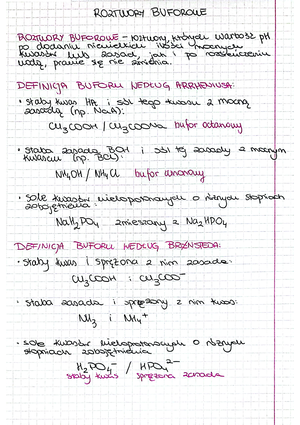 ROZTWORY BUFOROWE
ROZTWORY BUFOROWE - roztwory, których wartość pH
po dodaniu niewielkich ilości mocnych
kwasów lub zasad, jak i po rozcieńczeniu
wodą, prawie się nie zmienia.
DEFINICJA BUFORU WEDŁUG ARRHENIUSA:
• słaby kwas HA i sól tego kwasu z mocną
zasadą (np. NaA):
CH3COOH / CH3COONa bufor octanowy
• słaba zasada BOH i sól tej zasady z mocnym
kwasem (np. BCl):
NH4OH / NH4Cl bufor amonowy
• sole kwasów wieloprotonowych o różnych stopniach
zobojętnienia:
NaH2PO4 zmieszany z Na2HPO4
DEFINICJA BUFORU WEDŁUG BRØNSTEDA:
• słaby kwas i sprzężona z nim zasada:
CH3COOH i CH3COO⁻
• słaba zasada i sprzężony z nim kwas:
NH3 i NH4⁺
• sole kwasów wieloprotonowych o różnym
stopniach zobojętnienia
H2PO4⁻ / HPO4²⁻
słaby kwas sprzężona zasada